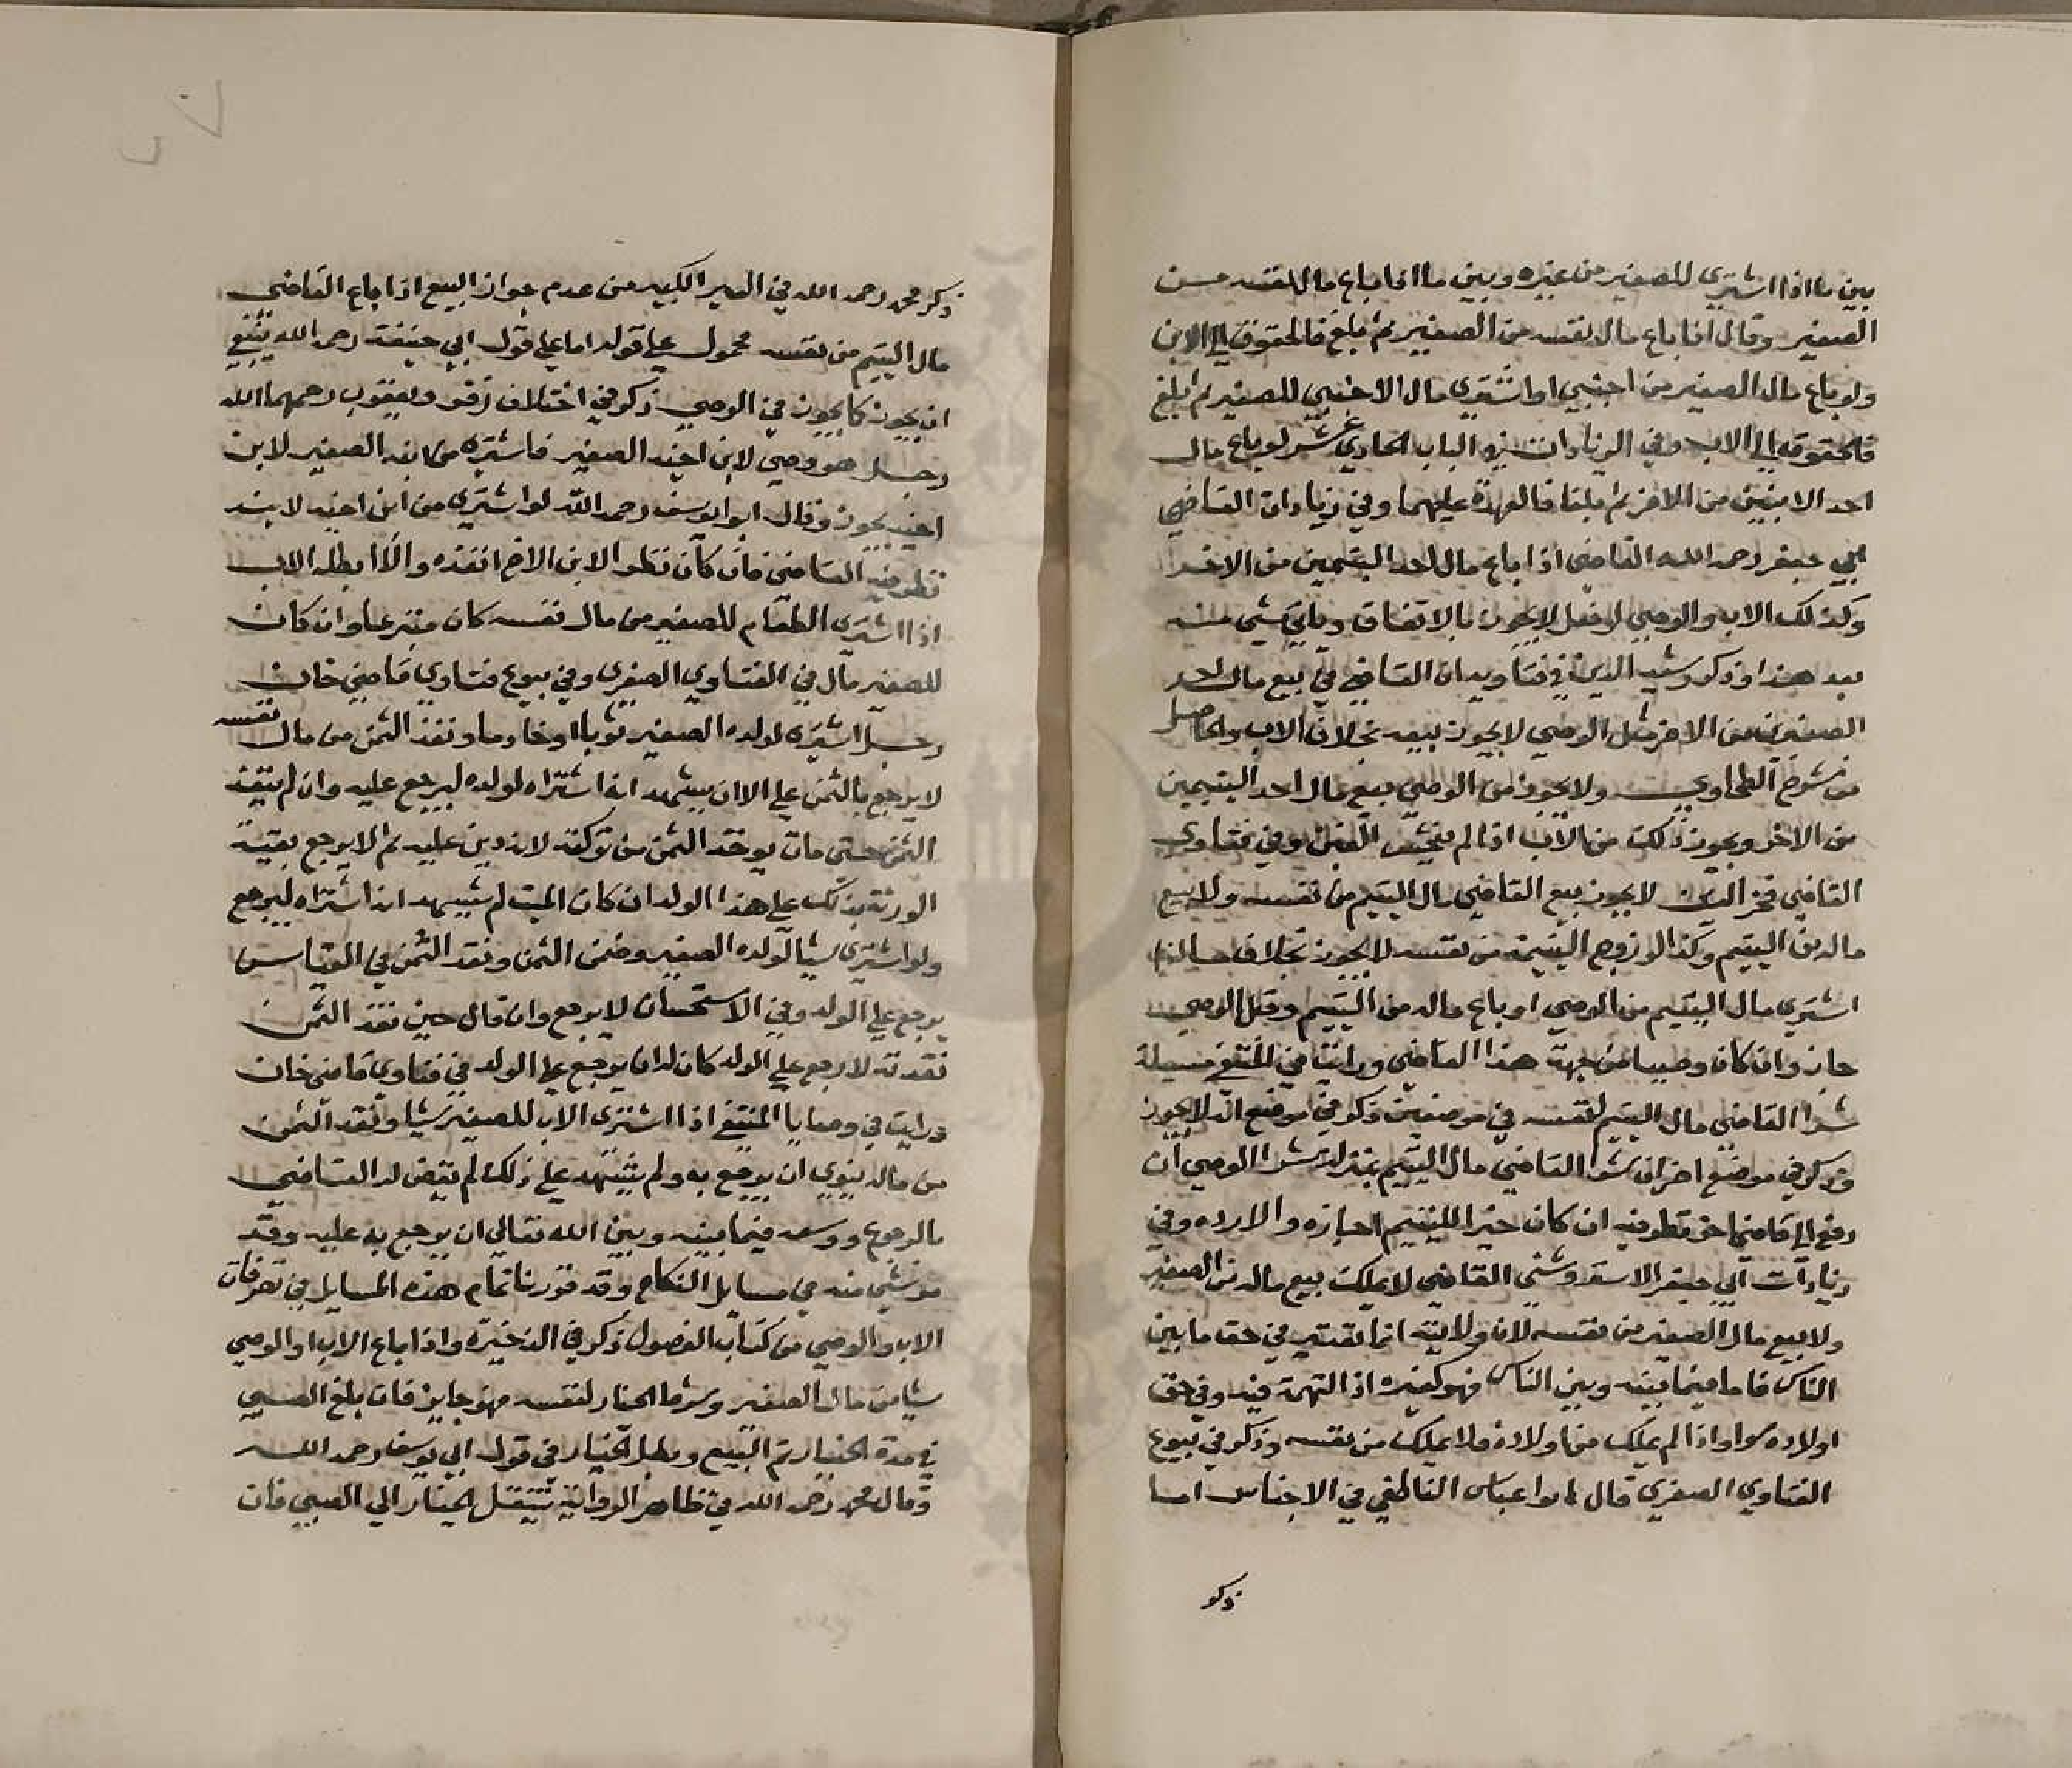 بين ما اذا اشترى للصغير من غيره وبين ما اذا باع مال نفسه من
الصغير وقال اذا باع مال نفسه من الصغير ثم بلغ فالحقوق الي الابن
ولو باع مال الصغير من اجنبي او اشترى مال الاجنبي للصغير ثم بلغ
فالحقوق الي الاب وفي الزيادات في الباب الحادي عشر لو باع مال
احد الابنين من الاخر ثم بلغا فالعهدة عليهما وفي زيادات القاضي
ابي جعفر رحمه الله القاضي اذا باع مال احد اليتيمين من الاخر
وكذلك الاب والوصي لو فعل لا يجوز بالاتفاق وياتي شي منه
بعد هذا وذكر رشيد الدين في فتاويه ان القاضي في بيع مال احد
الصغيرين من الاخر مثل الوصي لا يجوز بيعه بخلاف الاب والحاصل
من شرح الطحاوي ولا يجوز من الوصي بيع مال احد اليتيمين
من الاخر ويجوز ذلك من الاب اذا لم يفحش الغبن وفي فتاوى
القاضي فخر الدين لا يجوز بيع القاضي مال اليتيم من نفسه ولا بيع
ماله من اليتيم وكذا لو زوج اليتيمة من نفسه لا يجوز بخلاف ما اذا
اشترى مال اليتيم من الوصي او باع ماله من اليتيم وقبل الوصي
جاز وان كان وصيا من جهة هذا القاضي ورايت في المنتقي مسيلة
شرا القاضي مال اليتيم لنفسه في موضعين ذكر في موضع انه لا يجوز
وذكر في موضع اخر ان شرا القاضي مال اليتيم بمنزلة شرا الوصي ان
رفع الي قاضي اخر نظر فيه ان كان خيرا لليتيم اجازه والا رده وفي
زيادات ابي جعفر الاسروشني القاضي لا يملك بيع ماله من الصغير
ولا بيع مال الصغير من نفسه لان ولايته انما تعتبر في حق ما بين
الناس فاما فيما بينه وبين الناس فهو كغيره اذ التهمة فيه وفي حق
اولاده سوا واذا لم يملك من اولاده ولا يملك من نفسه وذكر في بيوع
الفتاوي الصغرى قال ابوا عباس الناطفي في الاجناس اما
ذكر
ذكر محمد رحمه الله في السير الكبير من عدم جواز البيع اذا باع القاضي
مال اليتيم من نفسه محمول علي قوله اما علي قول ابي حنيفة رحمه الله ينبغي
ان يجوز كما يجوز في الوصي ذكر في اختلاف زفر ويعقوب رحمهما الله
رجل هو وصي لابن اخيه الصغير فاشترى من ابنه الصغير لابن
اخيه يجوز وقال ابوا يوسف رحمه الله لو اشترى من ابن اخيه لابنه
نظر فيه القاضي فان كان نظرا لابن الاخ انفذه والا ابطله الاب
اذا اشترى الطعام للصغير من مال نفسه كان متبرعا وان كان
للصغير مال في الفتاوي الصغرى وفي بيوع فتاوي قاضي خان
رجل اشترى لولده الصغير ثوبا او خادما ونقد الثمن من مال نفسه
لا يرجع بالثمن علي الا ان يشهد انه اشتراه لولده ليرجع عليه وان لم ينقد
الثمن حتى مات يوخذ الثمن من تركته لانه دين عليه ثم لا يرجع بقية
الورثة بذلك علي هذا الولد ان كان الميت لم يشهد انه اشتراه ليرجع
ولو اشترى شيا لولده الصغير وضمن الثمن ونقد الثمن في القياس
يرجع علي الولد وفي الاستحسان لا يرجع وان قال حين نقد الثمن
نقدته لارجع علي الولد كان له ان يرجع علي الولد في فتاوى قاضي خان
ورايت في وصايا المنتقي اذا اشترى الاب للصغير شيا ونقد الثمن
من ماله ينوي ان يرجع به ولم يشهد علي ذلك لم يقض له القاضي
بالرجوع ووسعه فيما بينه وبين الله تعالي ان يرجع به عليه وقد
مر شي منه في مسايل النكاح وقد قررنا تمام هذه المسايل في تصرفات
الاب والوصي من كتاب الفصول ذكر في الذخيرة واذا باع الاب او الوصي
شيا من مال الصغير وشرط الخيار لنفسه فهو جايز فان بلغ الصبي
في مدة الخيار تم البيع وبطل الخيار في قول ابي يوسف رحمه الله
وقال محمد رحمه الله في ظاهر الرواية ينتقل الخيار الي الصبي فان